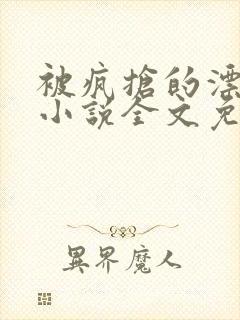 被疯搶的漂
小説全文免
異界魔人